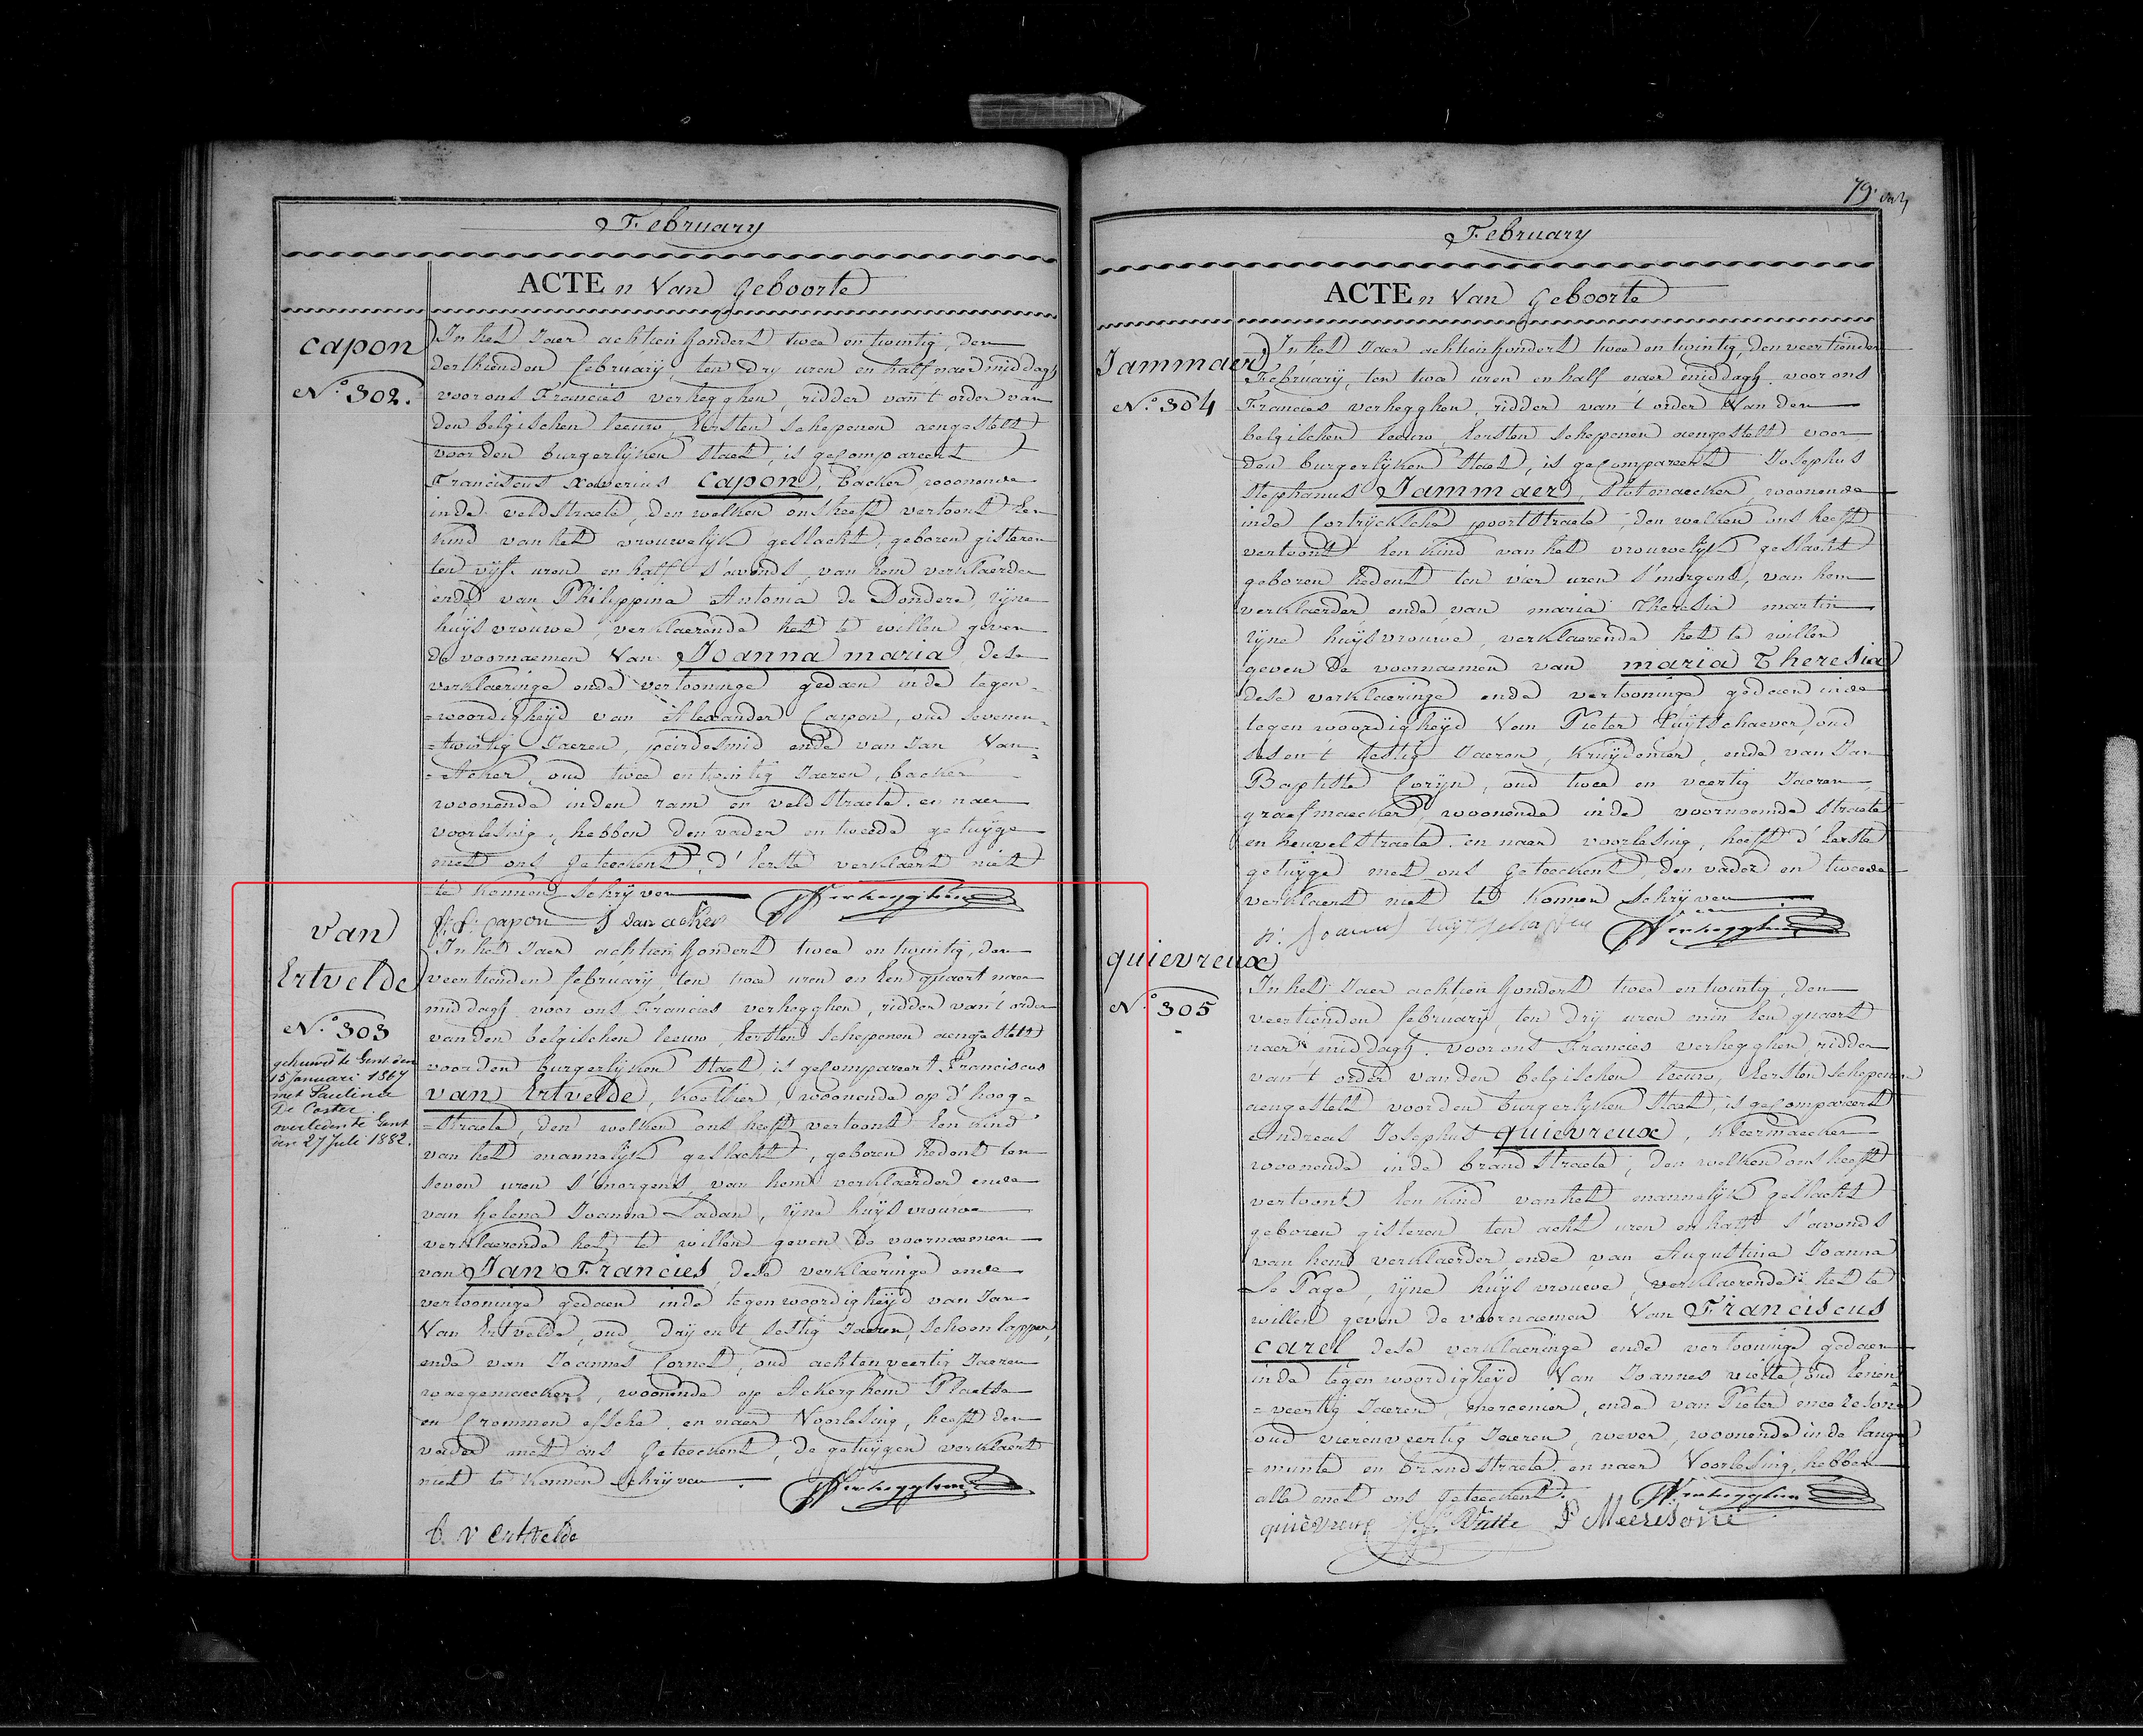 79. en
February
ACTEn Van Geboorte
capon
N.º 302.
In het Jaer achtien hondert twee en twintig, den
derthienden february, ten dry uren en half naer middagh
voor ons Francies verhegghen, ridder van 't order van
den belgischen leeuw, Eersten schepenen aengestelt
voor den burgerlijken staet, is gecompareert
Franciscus xaverius capon, backer woonende
inde veldstraete, den welken ons heeft vertoont Een
kind van het vrouwelijk geslacht, geboren gisteren
ten vijf uren en half s'avonds, van hem verklaerder
ende van Philippina Antonia de Dondere, zijne
huijsvrouwe, verklaerende het te willen geven
de voornaemen Van Joanna maria, dese
verklaeringe ende vertooninge gedaen inde tegen-
=woordigheijd van Alexander Capon, oud sevenen-
=twintig Jaeren, peirdesmid ende van Jan Van-
=Acker, oud twee en twintig Jaeren, backer
woonende inden ram en veldstraete. en naer
voorlesing, hebben den vader en tweede getuijge
met ons Geteeckent, d'Eerste verklaert niet
te konnen schrijven
Verhegghen
fr. capon J van acker
van
Ertvelde
N.º 303
gehuwd te Gent den
15 Januari 1867
met Paulina
De Coster
overleden te Gent
den 27 Juli 1882.
In het Jaer achtien hondert twee en twintig, den
veertienden february, ten twee uren en Een quaert naer
middagh voor ons Francies verhegghen, ridder van 't order
van den belgischen leeuw, Eersten schepenen aengestelt
voor den burgerlijken staet, is gecompareert Franciscus
van Ertvelde, Koetsier, woonende op d'hoog-
=straete, den welken ons heeft vertoont Een kind
van het mannelijk geslacht, geboren hedent ten
seven uren s'morgens, van hem verklaerder ende
van helena Joanna Ladan, zijne huijsvrouwe
verklaerende het te willen geven De voornaemen
van Jan Francies, dese verklaeringe ende
vertooninge gedaen inde tegenwoordigheijd van Jan
Van Ertvelde, oud drij en 't sestig Jaeren, schoenlapper,
ende van Joannes Cornet, oud achtenveertig Jaeren
waegemaecker, woonende op Ackerghem Plaetse
en Crommen essche. en naer Voorlesing, heeft den
vader met ons Geteeckent, de getuijgen verklaert
niet te konnen schrijven.
Verhegghen
v Ertvelde
February
ACTEn Van Geboorte
Jammaer
N.º 304
In het Jaer achtien hondert twee en twintig, den veertienden
February, ten twee uren en half naer middagh. voor ons
Francies verhegghen, ridder van 't order Van den
belgischen leeuw, Eersten schepenen aengestelt voor
den burgerlijken staet, is gecompareert Josephus
stephanus Jammaer, slotmaecker, woonende
inde Cortrijcksche poortstraete, den welken ons heeft
vertoont Een kind van het vrouwelijk geslacht
geboren hedent ten vier uren s'morgens, van hem
verklaerder ende van maria Theresia martin
zijne huijsvrouwe, verklaerende het te willen
geven De voornaemen van maria Theresia
dese verklaeringe ende vertooninge gedaen inde
tegenwoordigheijd Van Pieter Tuijtschaever, oud
ses en 't sestig Jaeren, Kruijdenier, ende van Jan
Baptiste Corijn, oud twee en veertig Jaeren,
graefmaecker, woonende inde voornoemde straete
en heuvelstraete. en naer voorlesing, heeft d'Eerste
getuijge met ons Geteeckent, den vader en tweede
verklaert niet te konnen schrijven
Verhegghen
quievreux
N.º 305
In het Jaer achtien hondert twee en twintig, den
veertienden february, ten drij uren min Een quaert
naer middagh. voor ons Francies verhegghen, ridder
van 't order van den belgischen leeuw, Eersten schepenen
aengestelt voor den burgerlijken staet, is gecompareert
Andreas Josephus quievreux, Kleermaecker
woonende inde brandstraete, den welken ons heeft
vertoont Een kind van het mannelijk geslacht
geboren gisteren ten acht uren en half s'avonds
van hem verklaerder, ende van Augustina Joanna
Le Page, zijne huijsvrouwe, verklaerende het te
willen geven de voornaemen Van Franciscus
carel dese verklaeringe ende vertooninge gedaen
inde tegenwoordigheijd Van Joannes witte, oud Eenen-
=veertig Jaeren, mercenier, ende van Pieter meeresone
oud vierenveertig Jaeren, wever, woonende inde lange
=munte en brandstraete. en naer Voorlesing, hebben
alle met ons Geteeckent.
Verhegghen
quievreux Witte P Meeresone